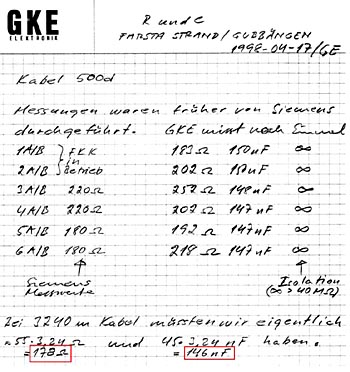 GKE
ELEKTRONIK
R und C
FARSTA STRAND/GUBBÄNGEN
1998-04-17/GE
Kabel 500d
Messungen waren früher von Siemens
durchgeführt. GKE misst noch Einmal
1A/B } FKK 183Ω 150nF ∞
2A/B in Betrieb 202Ω 150nF ∞
3A/B 220Ω 252Ω 148nF ∞
4A/B 220Ω 202Ω 147nF ∞
5A/B 180Ω 192Ω 147nF ∞
6A/B 180Ω 218Ω 147nF ∞
Siemens Messwerte
Isolation
(∞ >40MΩ)
Bei 3240 m Kabel müssten wir eigentlich
≈55·3,24Ω und 45·3,24nF haben.
=178Ω =146nF